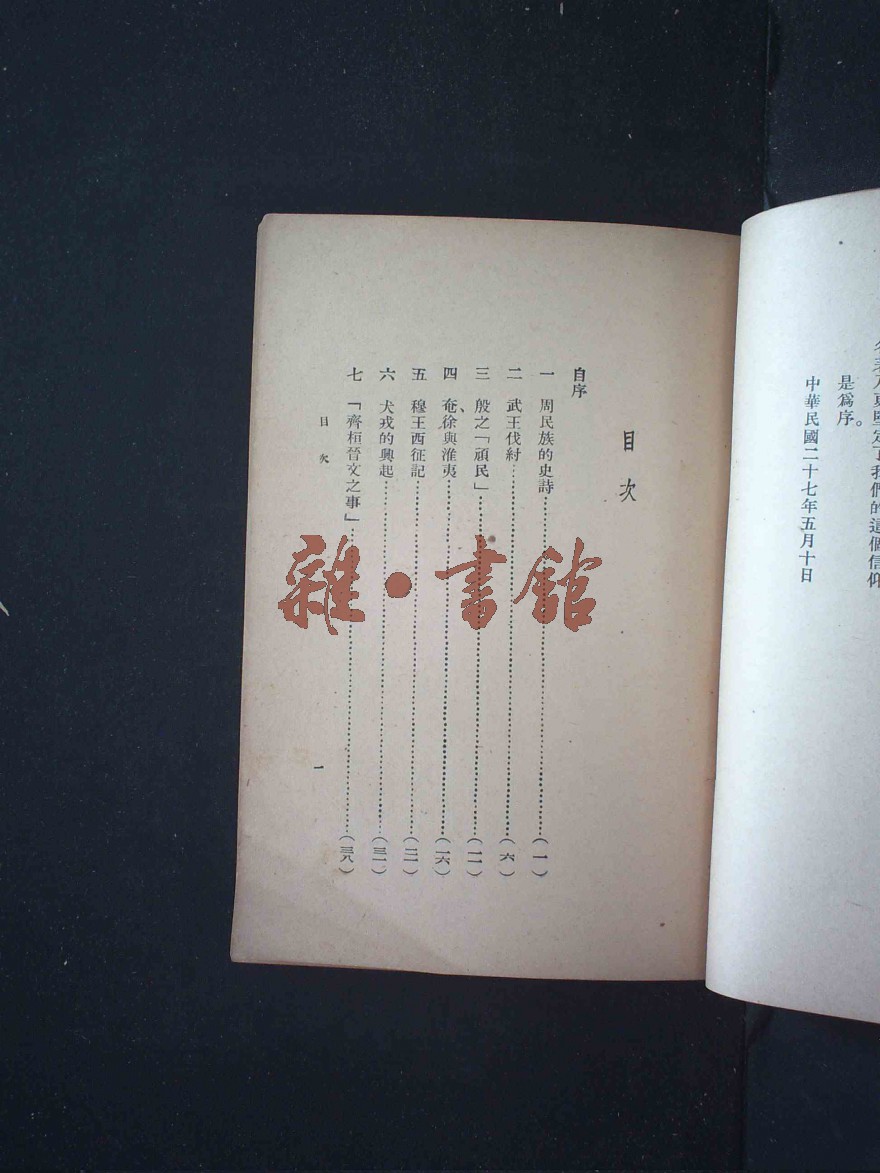 更堅定了我們的這個信仰
是爲序。
中華民國二十七年五月十日
目次
自序
一 周民族的史詩……(一)
二 武王伐紂……(六)
三 殷之「頑民」……(一一)
四 奄、徐與淮夷……(一六)
五 穆王西征記……(二一)
六 犬戎的興起……(三一)
七 「齊桓晉文之事」……(三八)
目次 一
雜·書館